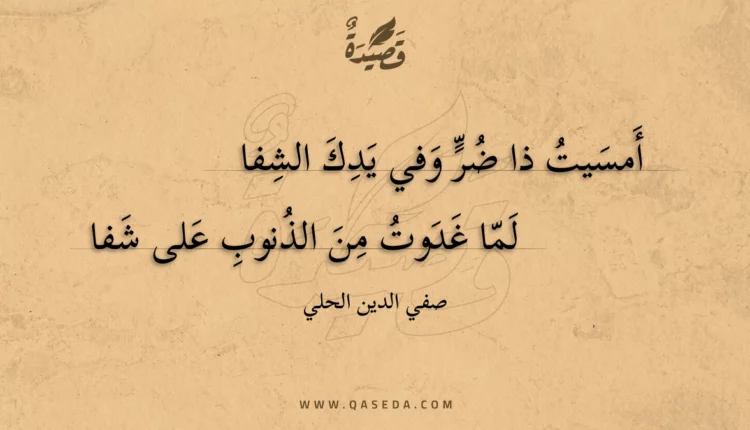 قَصِيدَةٌ
أَمسَيتُ ذا ضُرٍّ وَفي يَدِكَ الشِفا
لَمّا غَدَوتُ مِنَ الذُنوبِ عَلى شَفا
صفي الدين الحلي
WWW.QASEDA.COM